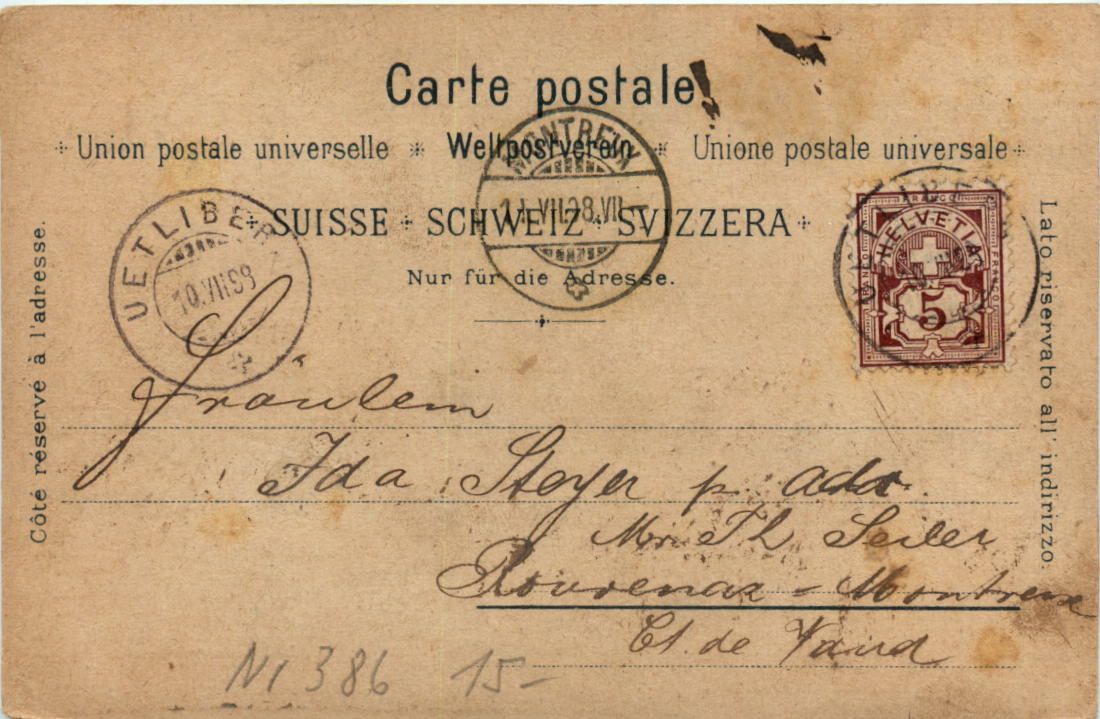 Carte postale
Union postale universelle * Weltpostverein * Unione postale universale
SUISSE SCHWEIZ SVIZZERA
Nur für die Adresse.
Côté réservé à l'adresse.
Lato riservato all' indirizzo.
UETLIBERG
10.VII.98
MONTREUX
11.VII.98.VII
FRANCO
HELVETIA
FRANCO
FRANCO
5
Fräulein
Ida Steyer p. adr.
Mr. Th Seiler
Rouvenaz - Montreux
Ct. de Vaud
N1 386 15-